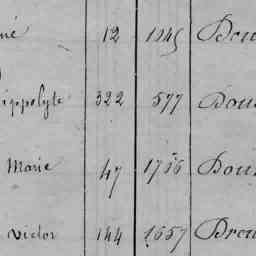 né 12 1245 Dou
Hippolyte 322 577 Dou
Marie 47 1766 Dou
Victor 144 1657 Dreu